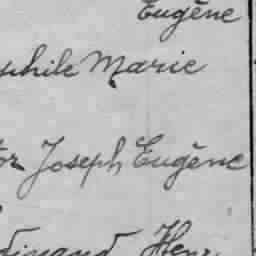 Eugène
phile Marie
tor Joseph Eugène
dinand Henr